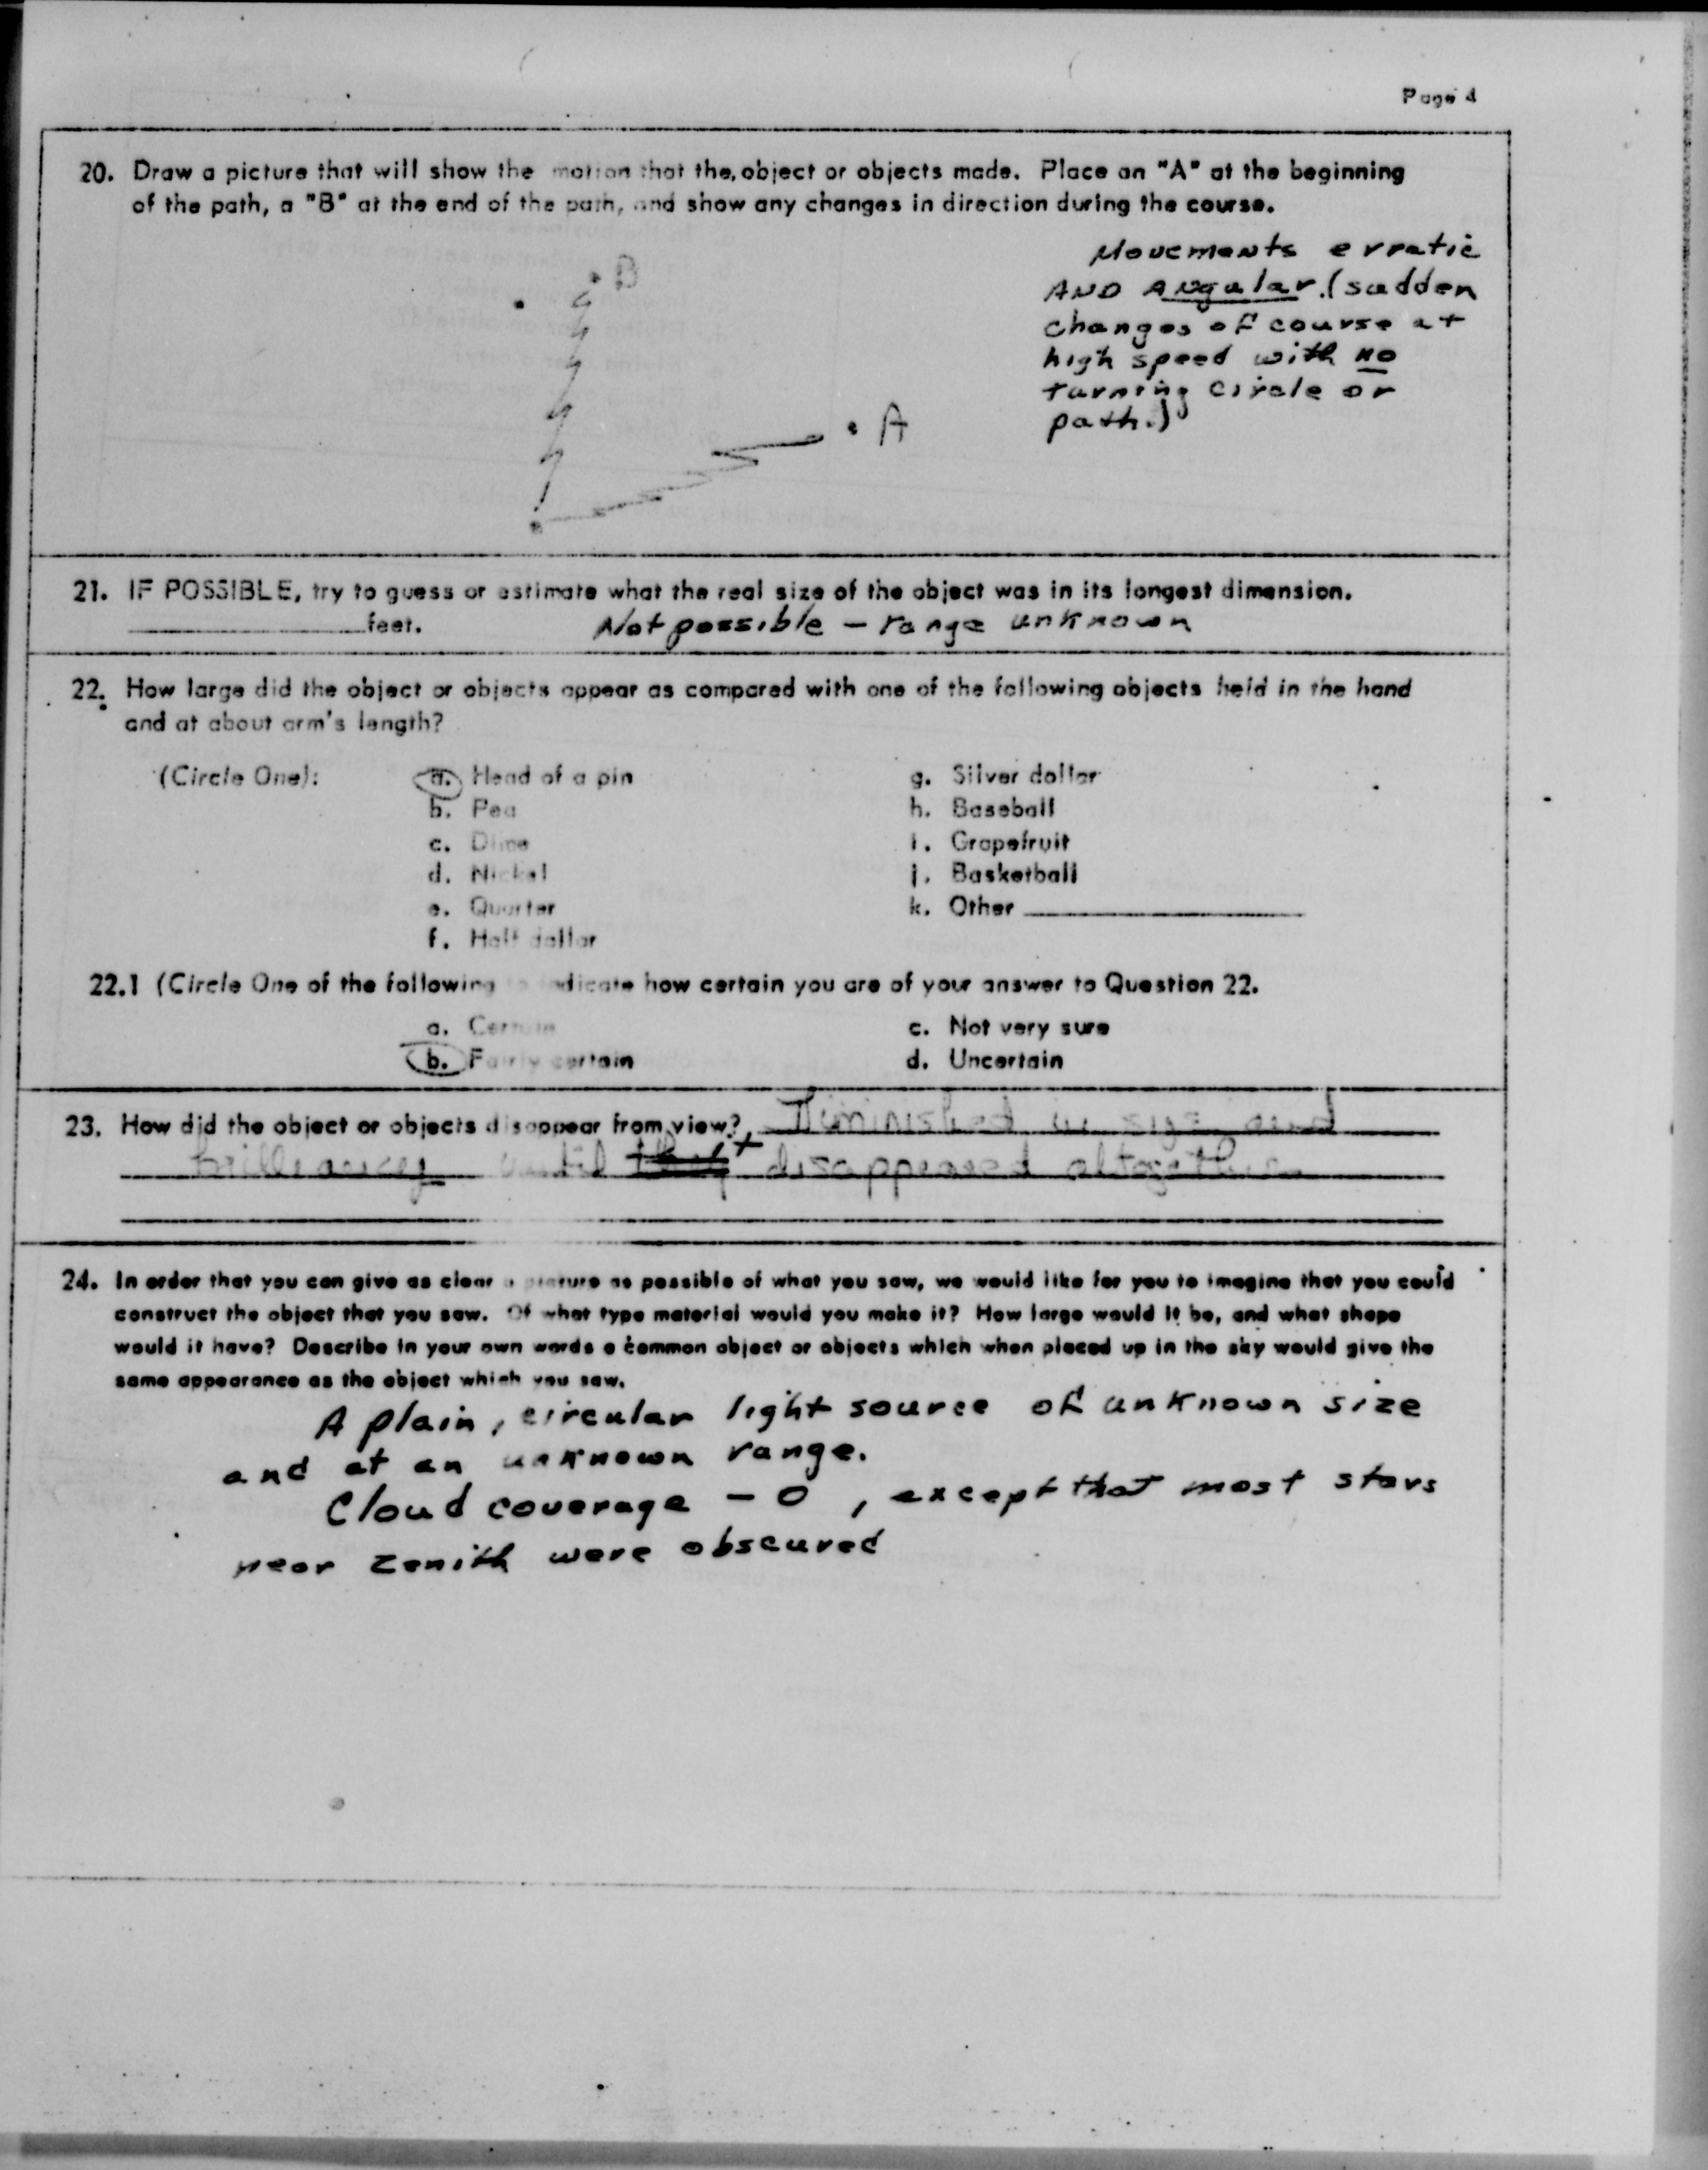 Page 4
20. Draw a picture that will show the motion that the object or objects made. Place an "A" at the beginning
of the path, a "B" at the end of the path, and show any changes in direction during the course.
Movements erratic
AND Angular. (sudden
changes of course at
high speed with no
turning circle or
path.)
B
A
21. IF POSSIBLE, try to guess or estimate what the real size of the object was in its longest dimension.
____________ feet. Not possible – range unknown
22. How large did the object or objects appear as compared with one of the following objects held in the hand
and at about arm's length?
(Circle One): a. Head of a pin g. Silver dollar
b. Pea h. Baseball
c. Dime i. Grapefruit
d. Nickel j. Basketball
e. Quarter k. Other ____________
f. Half dollar
22.1 (Circle One of the following to indicate how certain you are of your answer to Question 22.
a. Certain c. Not very sure
b. Fairly certain d. Uncertain
23. How did the object or objects disappear from view? Diminished in size and
brilliancy until it disappeared altogether
24. In order that you can give as clear a picture as possible of what you saw, we would like for you to imagine that you could
construct the object that you saw. Of what type material would you make it? How large would it be, and what shape
would it have? Describe in your own words a common object or objects which when placed up in the sky would give the
same appearance as the object which you saw.
A plain, circular light source of unknown size
and at an unknown range.
Cloud coverage – 0, except that most stars
near zenith were obscured